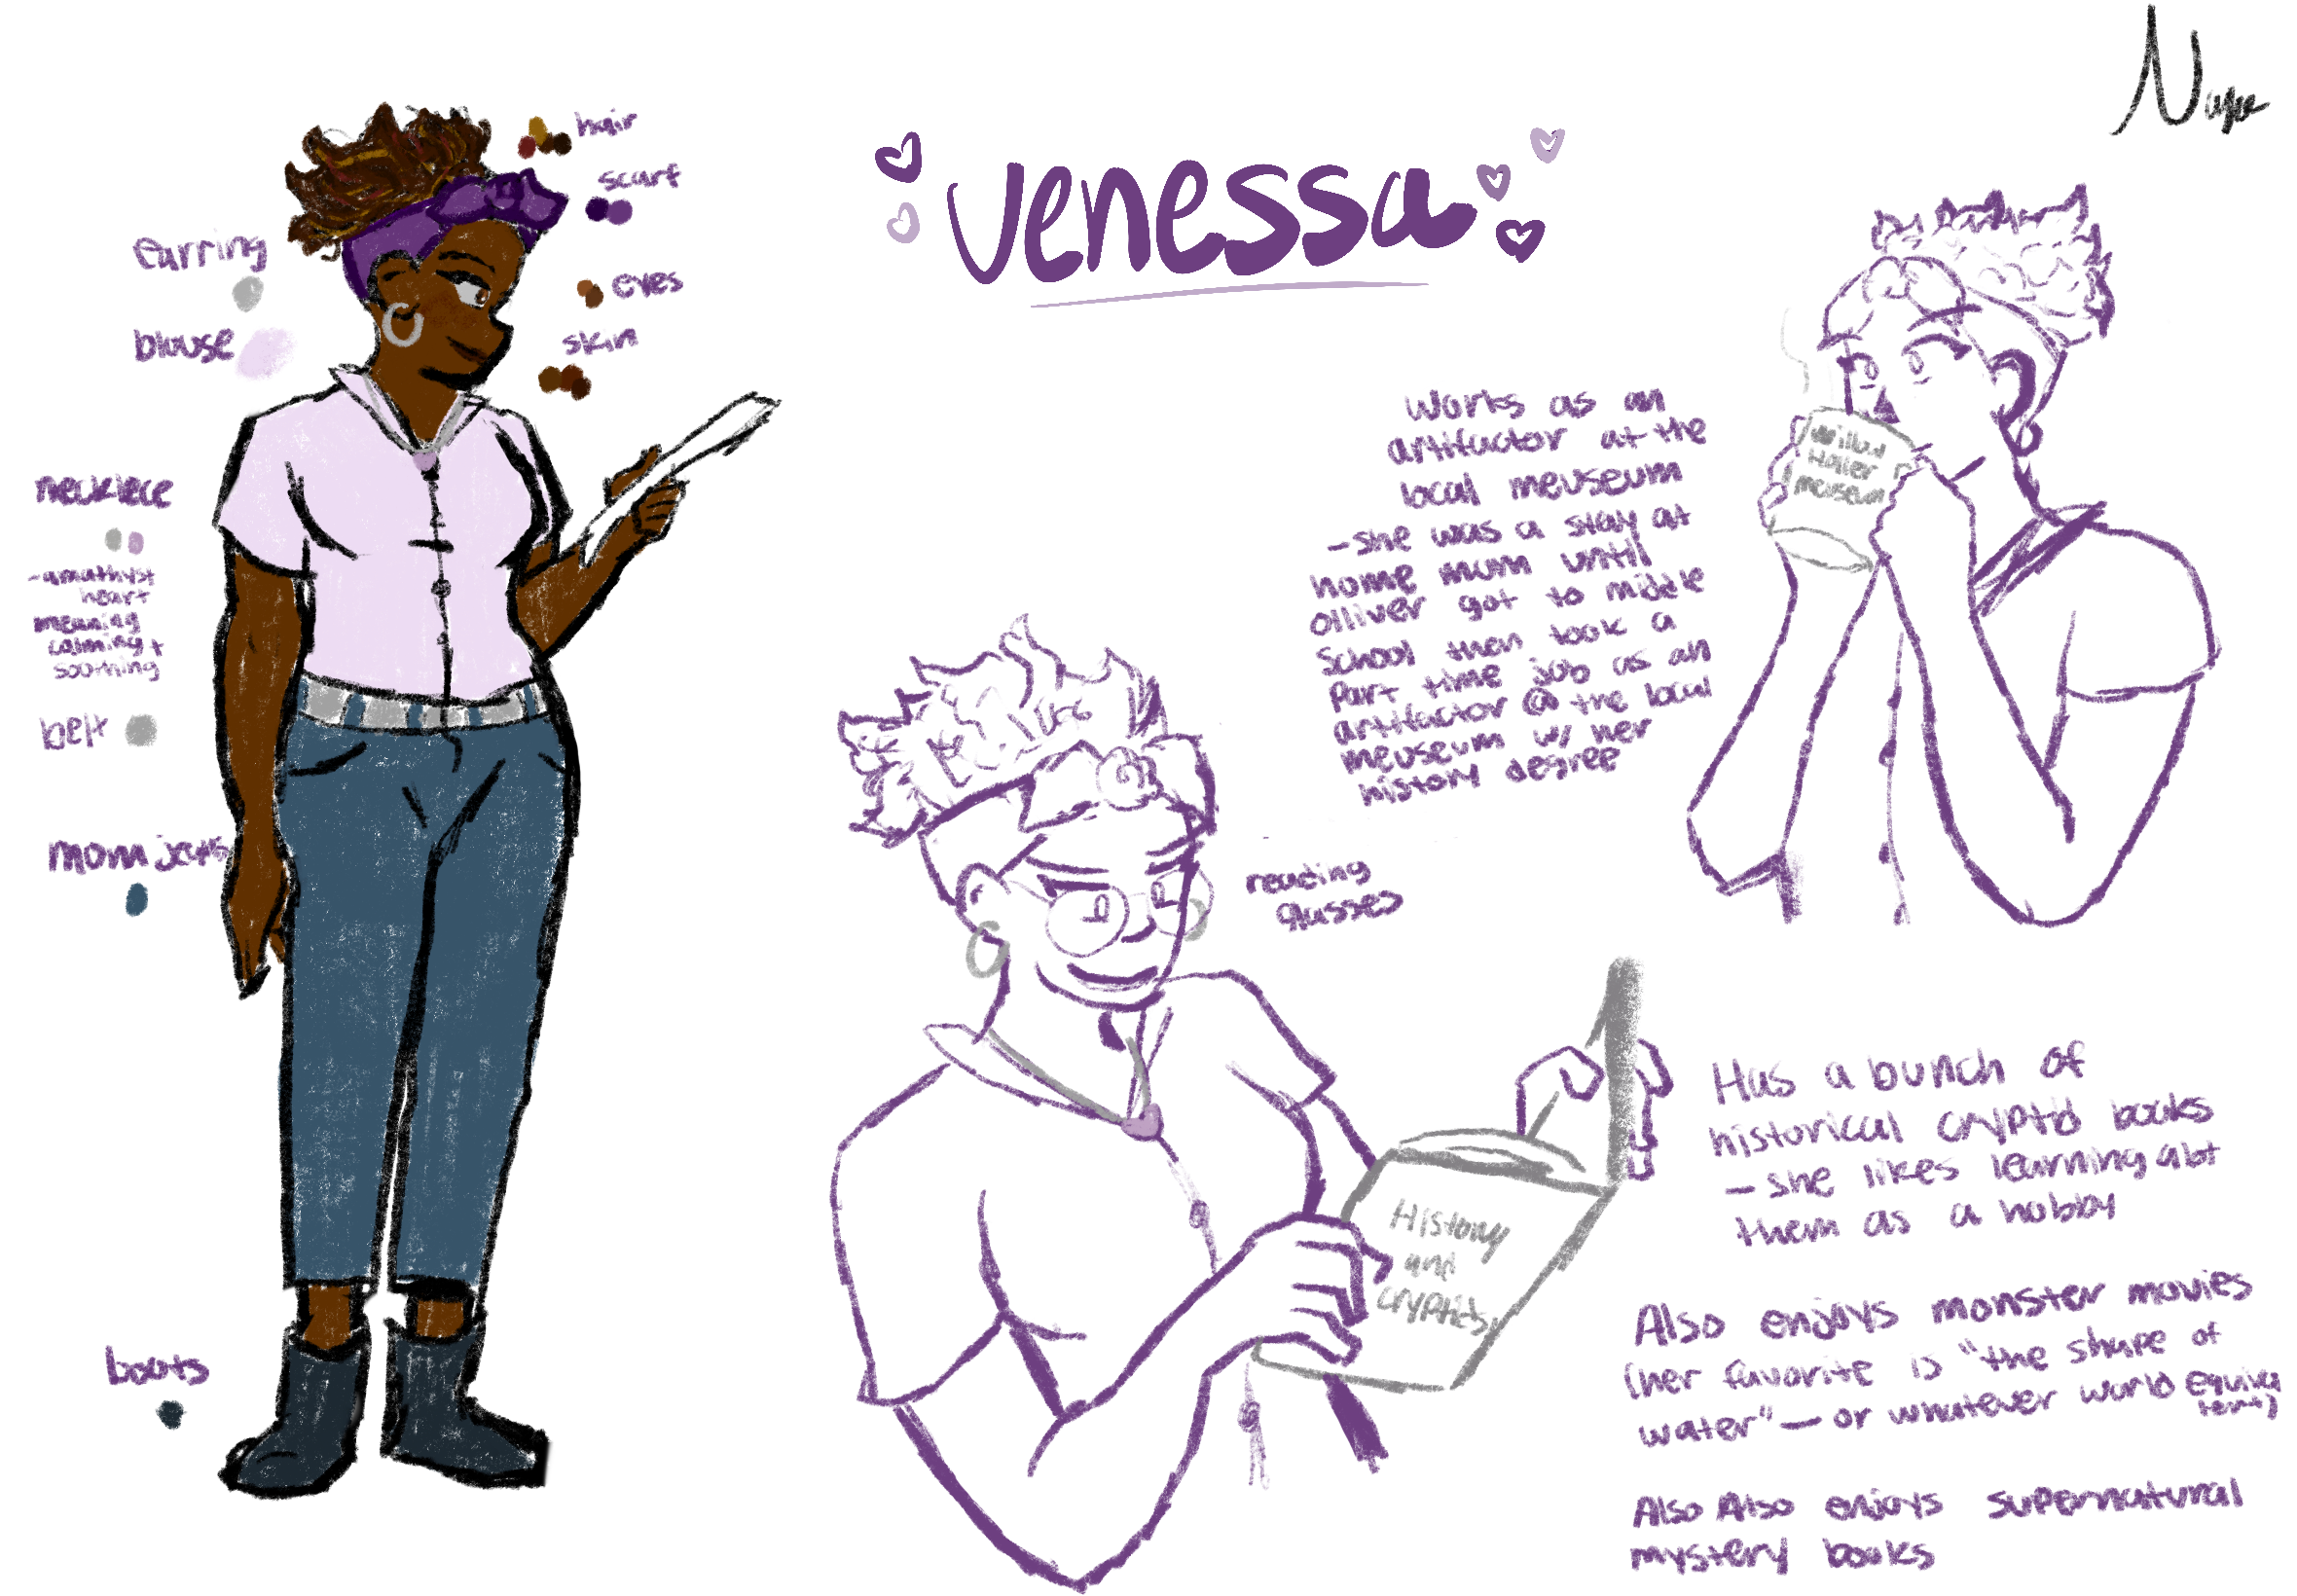 venessa
hair
scarf
earring
eyes
blouse
skin
necklece
-amathyst
heart
meaning
calming +
soothing
belt
mom jeans
boots
works as an
artifactor at the
local meuseum
-she was a stay at
home mum until
olliver got to middle
school then took a
part time job as an
artifactor @ the local
meuseum w/ her
history degree
Holler
meuseum
reading
glasses
History
and
cryptids
Has a bunch of
historical cryptid books
- she likes learning abt
them as a hobby
Also enjoys monster movies
(her favorite is "the shape of
water" - or whatever world equiva
lent)
Also Also enjoys supernatural
mystery books